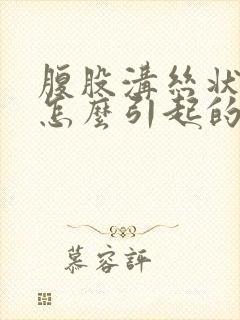 腹股溝絲狀
怎麼引起的
慕容評